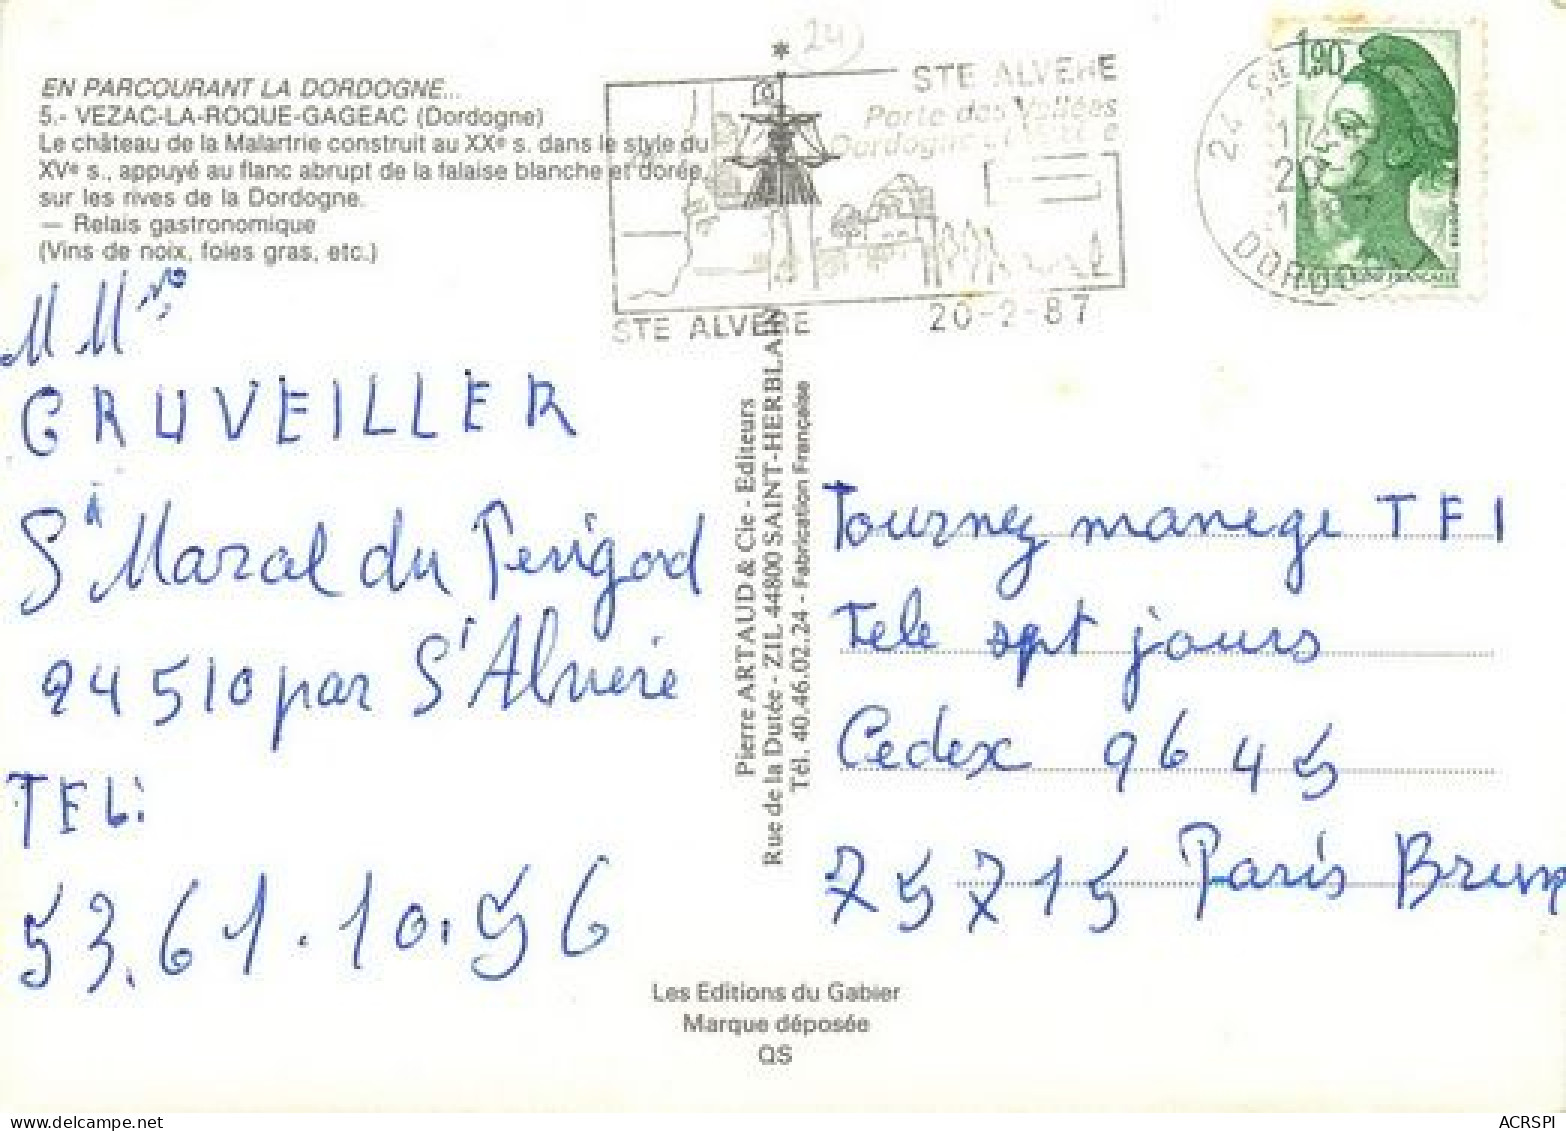 24
EN PARCOURANT LA DORDOGNE...
5.- VEZAC-LA-ROQUE-GAGEAC (Dordogne)
Le château de la Malartrie construit au XXe s. dans le style du
XVe s., appuyé au flanc abrupt de la falaise blanche et dorée,
sur les rives de la Dordogne.
— Relais gastronomique
(Vins de noix, foies gras, etc.)
STE ALVERE
Porte des Vallées
Dordogne
STE ALVERE
20-2-87
1,90
24 STE
17
20-2
DORDOGNE
M Mme
GRUVEILLER
St Marcal du Perigord
24510 par St Alvere
TEL:
53.61.10.56
Pierre ARTAUD & Cie - Editeurs
Rue de la Dutée - ZIL 44800 SAINT-HERBLAIN
Tél. 40.46.02.24 - Fabrication Française
Tournez manege TF1
Tele sept jours
Cedex 9645
75715 Paris Brune
Les Editions du Gabier
Marque déposée
QS
ACRSPI